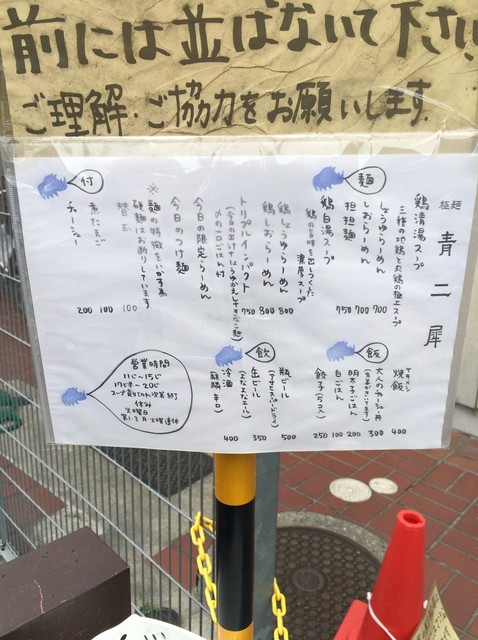 前には並ばないで下さい
ご理解・ご協力をお願いします。
極麺 青二犀
麺
鶏清湯スープ
三種の地鶏と丸鶏の極上スープ
しょうゆらーめん 700
しおらーめん 700
担担麺 750
鶏白湯スープ
鶏の旨味を出しつくした濃厚スープ
鶏しょうゆらーめん 800
鶏しおらーめん 800
トリプルインパクト 750
〆の一口ごはん付
今日の限定らーめん
今日のつけ麺
※麺の特徴をいかす為
硬麺はお断りしています
付
替玉 100
煮たまご 100
チャーシュー 200
飯
焼飯 400
大人のチャーシュー丼 300
明太子ごはん 200
白ごはん 100
餃子(5コ) 250
飲
瓶ビール 500
(アサヒスーパードライ)
缶ビール 350
冷酒 400
営業時間
11じ〜15じ
17じ半〜20じ
スープ売り切れ次第終了
休み
火曜日
第1・3月・火曜連休